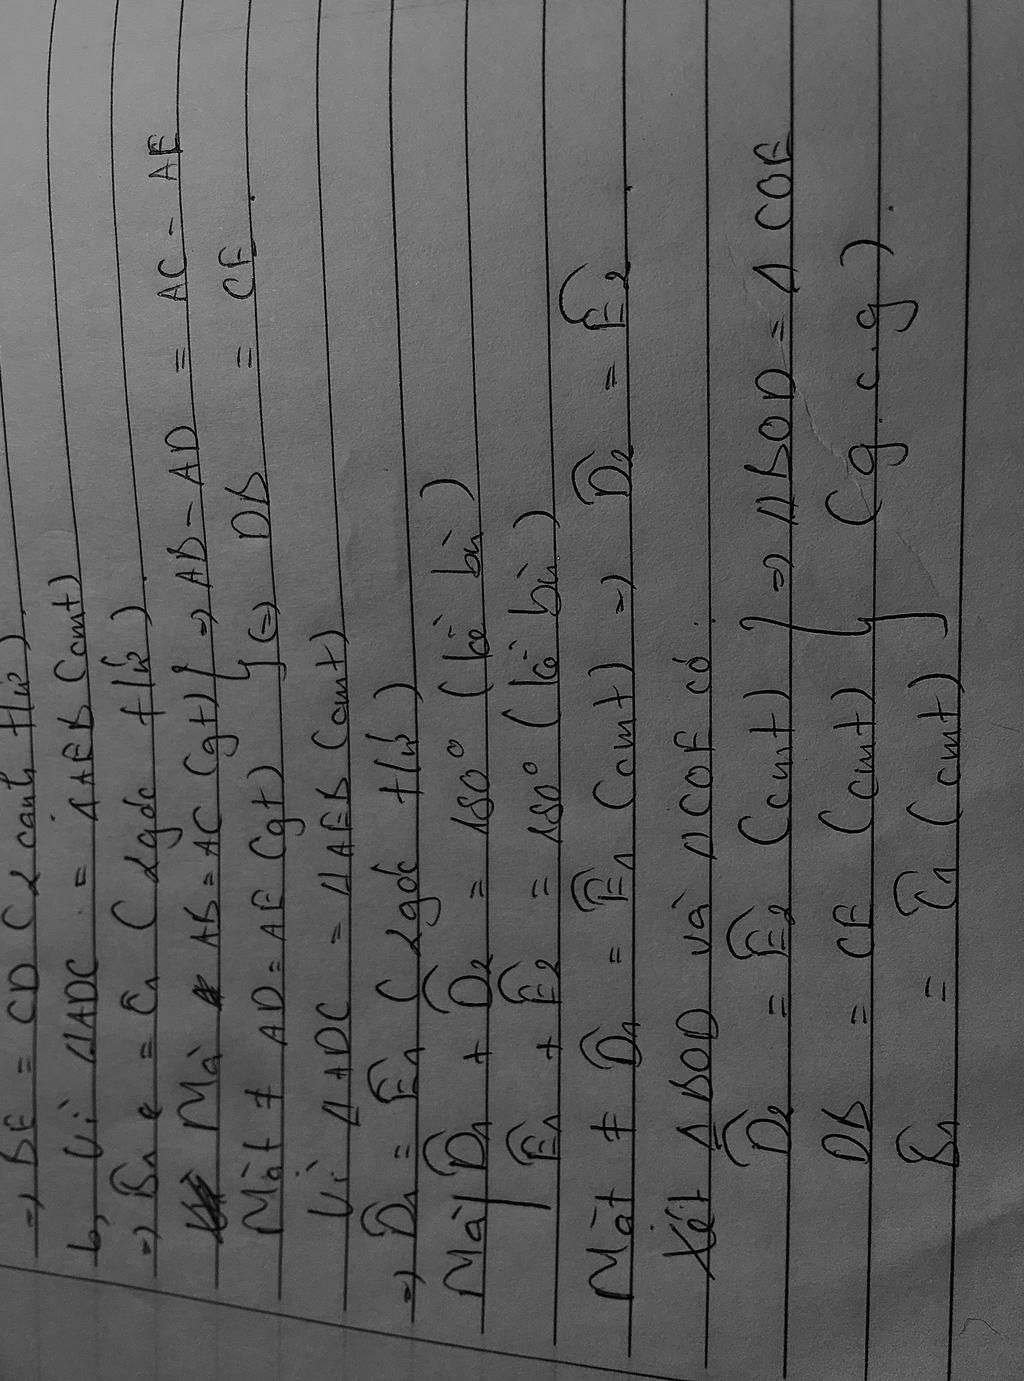 => BE = CD ( 2 cạnh tứ)
b, Vì ΔADC = ΔAEB (cmt)
=> B̂1 = Ĉ1 ( 2góc tứ)
Mà AB = AC (gt) } => AB - AD = AC - AE
Mặt ≠ AD = AE (gt) } (=) DB = CE.
Vì ΔADC = ΔAEB (cmt)
=> D̂1 = Ê1 ( 2góc tứ )
Mà | D̂1 + D̂2 = 180° ( kề bù )
| Ê1 + Ê2 = 180° ( kề bù )
Mặt ≠ D̂1 = Ê1 (cmt) => D̂2 = Ê2.
Xét ΔBOD và ΔCOE có
D̂2 = Ê2 (cmt) } => ΔBOD = ΔCOE
DB = CE (cmt) } (g.c.g).
B̂1 = Ĉ1 (cmt) }